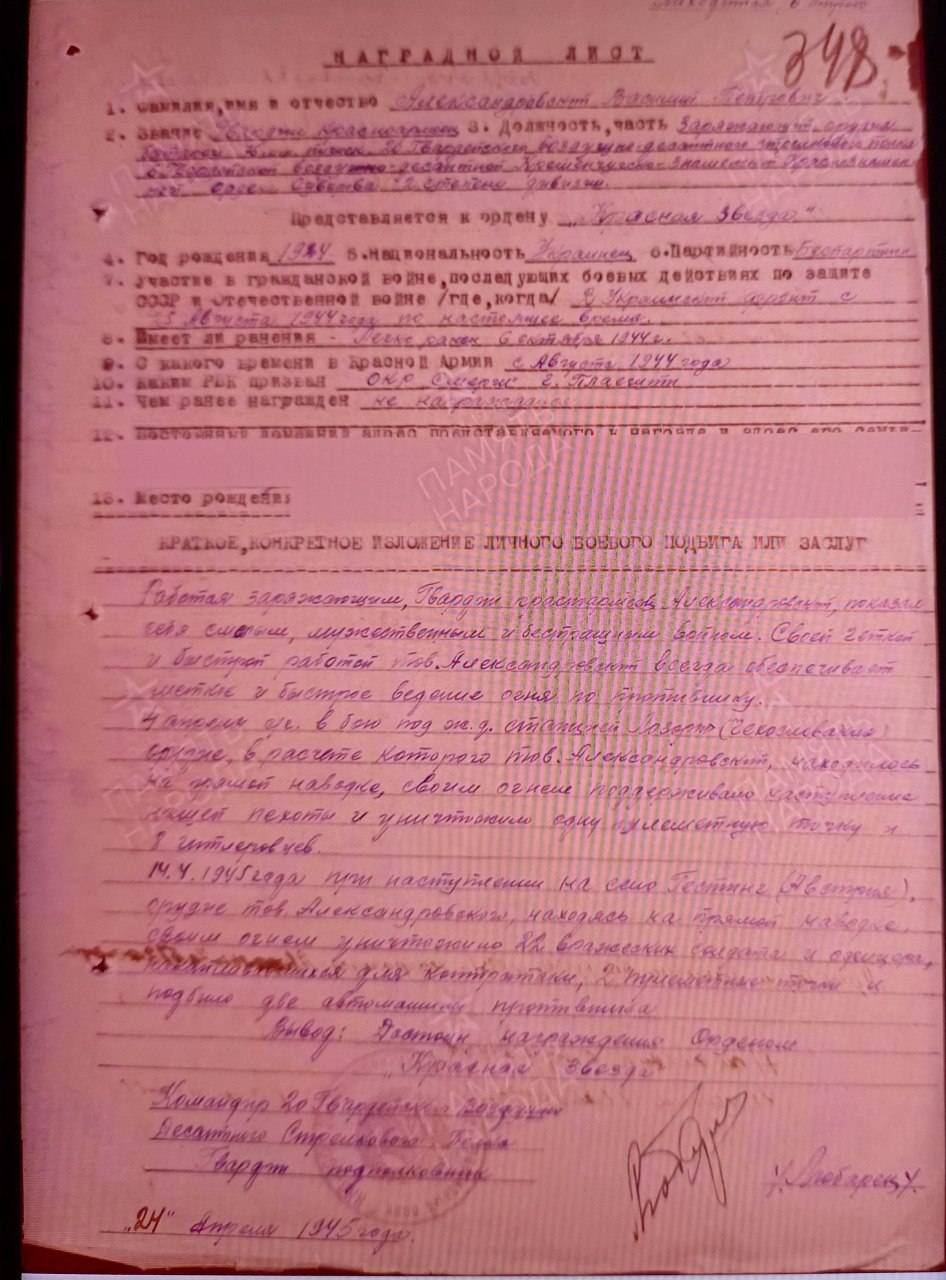 Находится в
НАГРАДНОЙ ЛИСТ
348
1. Фамилия, имя и отчество Александровский Василий Петрович
2. Звание Гвардии красноармеец 3. Должность, часть Заряжающий орудия
батареи 20 Гвардейского воздушно-десантного стрелкового полка
Гвардейской воздушно-десантной Кременчугско-Знаменской Краснознамен-
ной орд. Суворова 2 степени дивизии.
Представляется к ордену „Красная Звезда"
4. Год рождения 1924 5. Национальность Украинец 6. Партийность Беспартийн
7. Участие в гражданской войне, последующих боевых действиях по защите
СССР и Отечественной войне /где, когда/ Украинский фронт с
Августа 1944 года по настоящее время.
8. Имеет ли ранения - Легко ранен 6 октября 1944 г.
9. С какого времени в Красной Армии с Августа 1944 года
10. Каким РВК призван ОКР „Смерш" г. Плоешти
11. Чем ранее награжден не награждался
12. Постоянный домашний адрес представляемого к награде и адрес его семьи-
ПАМЯТЬ
НАРОДА
13. Место рождения
КРАТКОЕ, КОНКРЕТНОЕ ИЗЛОЖЕНИЕ ЛИЧНОГО БОЕВОГО ПОДВИГА ИЛИ ЗАСЛУГ
Работая заряжающим, Гвардии красноармеец Александровский, показал
себя смелым, мужественным и бесстрашным воином. Своей четкой
и быстрой работой тов. Александровский всегда обеспечивает
меткое и быстрое ведение огня по противнику.
4 апреля с/г. в бою под ж.д. станцией (Чехословакия)
орудие, в расчете которого тов. Александровский, находилось
на прямой наводке, своим огнем поддерживало наступление
нашей пехоты и уничтожило одну пулеметную точку и
8 гитлеровцев.
14.4.1945 года при наступлении на село Гестинг (Австрия),
орудие тов. Александровского, находясь на прямой наводке,
своим огнем уничтожило 22 вражеских солдата и офицера,
накапливающихся для контратаки, 2 пулеметные точки и
подбило две автомашины противника
Вывод: Достоин награждения Орденом
„Красная Звезда"
Командир 20 Гвардейского Воздушно
Десантного Стрелкового Полка
Гвардии подполковник /Любарец/.
„24" Апреля 1945 года.